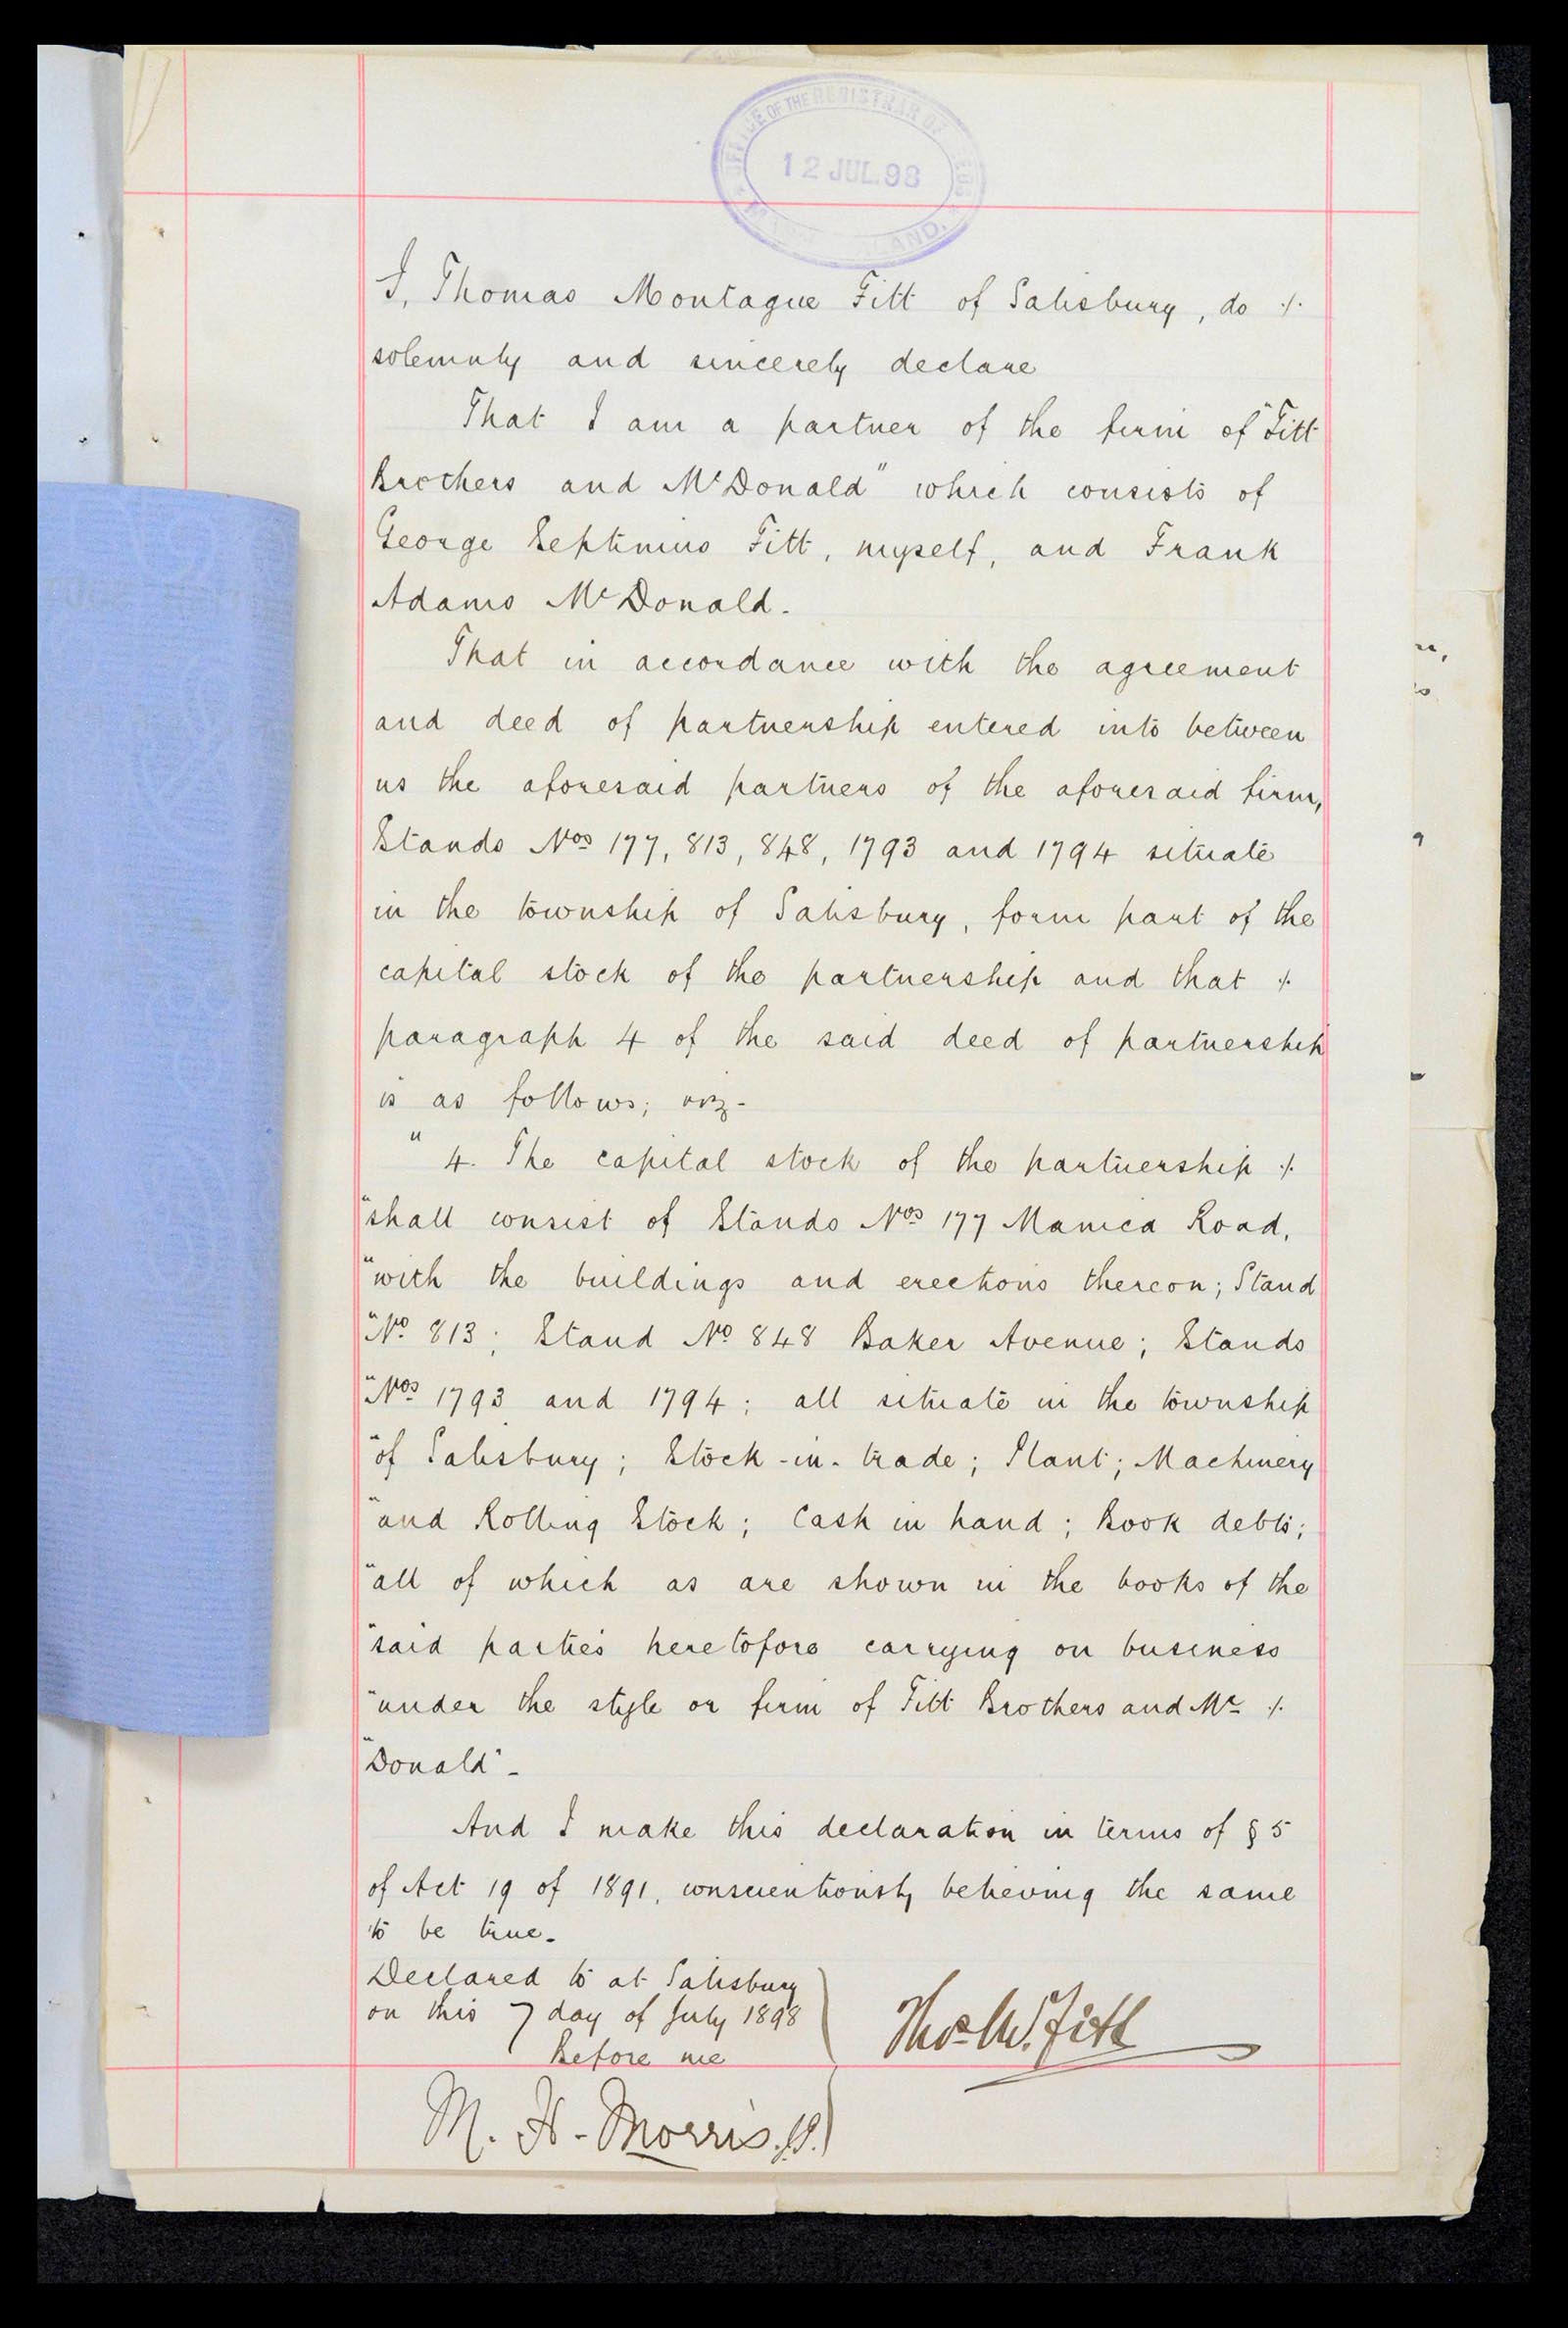 OFFICE OF THE REGISTRAR OF DEEDS
12 JUL.98
I, Thomas Montague Fitt of Salisbury, do ·/·
solemnly and sincerely declare
That I am a partner of the firm of "Fitt
Brothers and McDonald" which consists of
George Septimus Fitt, myself, and Frank
Adams McDonald.
That in accordance with the agreement
and deed of partnership entered into between
us the aforesaid partners of the aforesaid firm,
Stands Nos 177, 813, 848, 1793 and 1794 situate
in the township of Salisbury, form part of the
capital stock of the partnership and that ·/·
paragraph 4 of the said deed of partnership
is as follows; viz-
" 4. The capital stock of the partnership ·/·
"shall consist of Stands Nos 177 Manica Road,
"with the buildings and erections thereon; Stand
"No. 813; Stand No 848 Baker Avenue; Stands
"Nos 1793 and 1794; all situate in the township
"of Salisbury; Stock-in-trade; Plant; Machinery
"and Rolling Stock; Cash in hand; Book debts;
"all of which as are shown in the books of the
"said parties heretofore carrying on business
"under the style or firm of Fitt Brothers and Mc ·/·
"Donald"-
And I make this declaration in terms of § 5
of Act 19 of 1891, conscientiously believing the same
to be true.
Declared to at Salisbury
on this 7 day of July 1898
Before me
Thos M. Fitt
M. H. Morris. J.P.